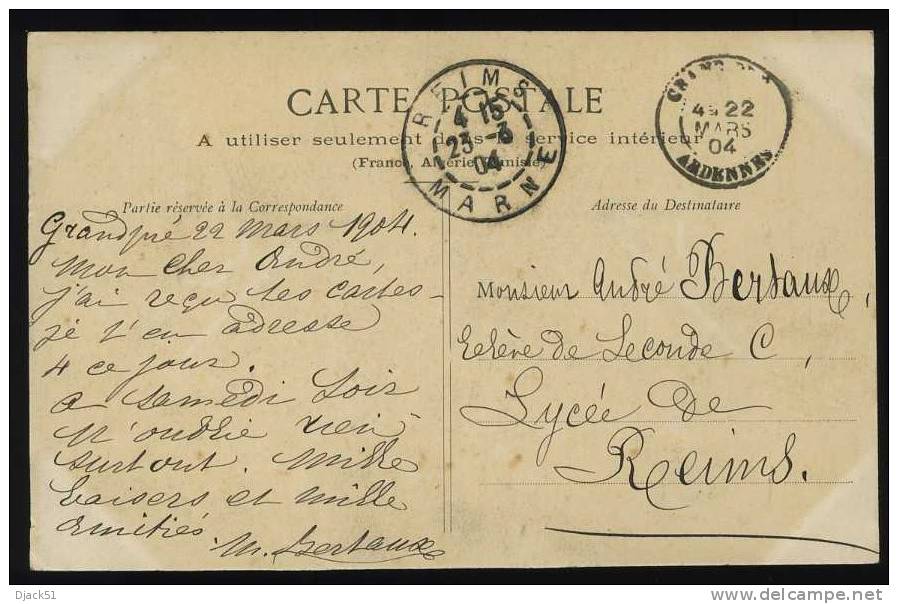 CARTE POSTALE
A utiliser seulement dans le service intérieur
(France, Algérie, Tunisie)
REIMS
4 15
23 - 3
04
MARNE
4 22
MARS
04
ARDENNES
Partie réservée à la Correspondance
Grandpré 22 mars 1904.
Mon cher André,
j'ai reçu tes cartes -
je t'en adresse
4 ce jour.
A samedi soir
N'oublie rien
surtout. Mille
baisers et mille
amitiés.
M. Bertaux
Adresse du Destinataire
Monsieur André Bertaux,
Elève de Seconde C,
Lycée de
Reims.
Djack51
delcampe.net